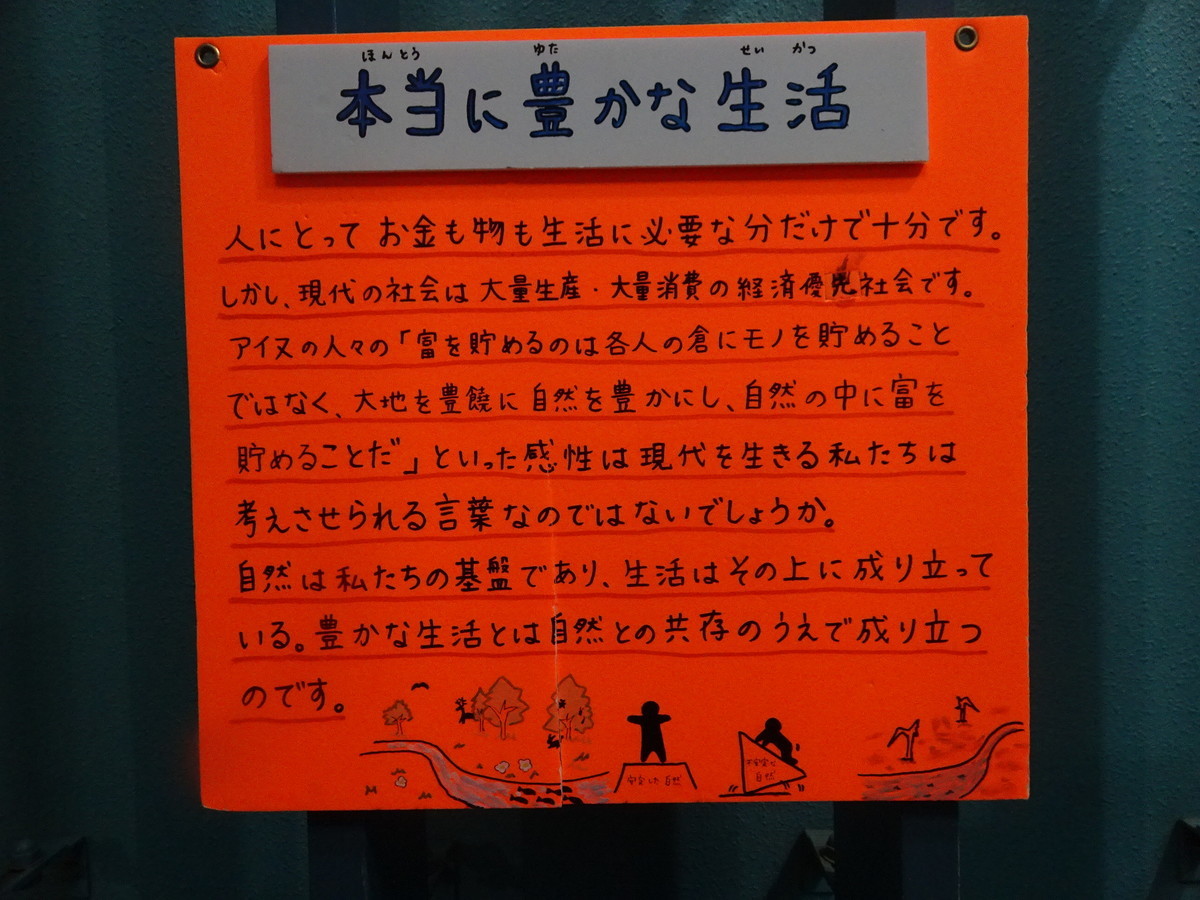 ほんとう ゆた せい かつ
本当に豊かな生活
人にとって お金も物も生活に必要な分だけで十分です。
しかし、現代の社会は 大量生産・大量消費の経済優先社会です。
アイヌの人々の「富を貯めるのは各人の倉にモノを貯めること
ではなく、大地を豊饒に自然を豊かにし、自然の中に富を
貯めることだ」といった感性は現代を生きる私たちは
考えさせられる言葉なのではないでしょうか。
自然は私たちの基盤であり、生活はその上に成り立って
いる。豊かな生活とは自然との共存のうえで成り立つ
のです。
安定した自然
不安定な
自然